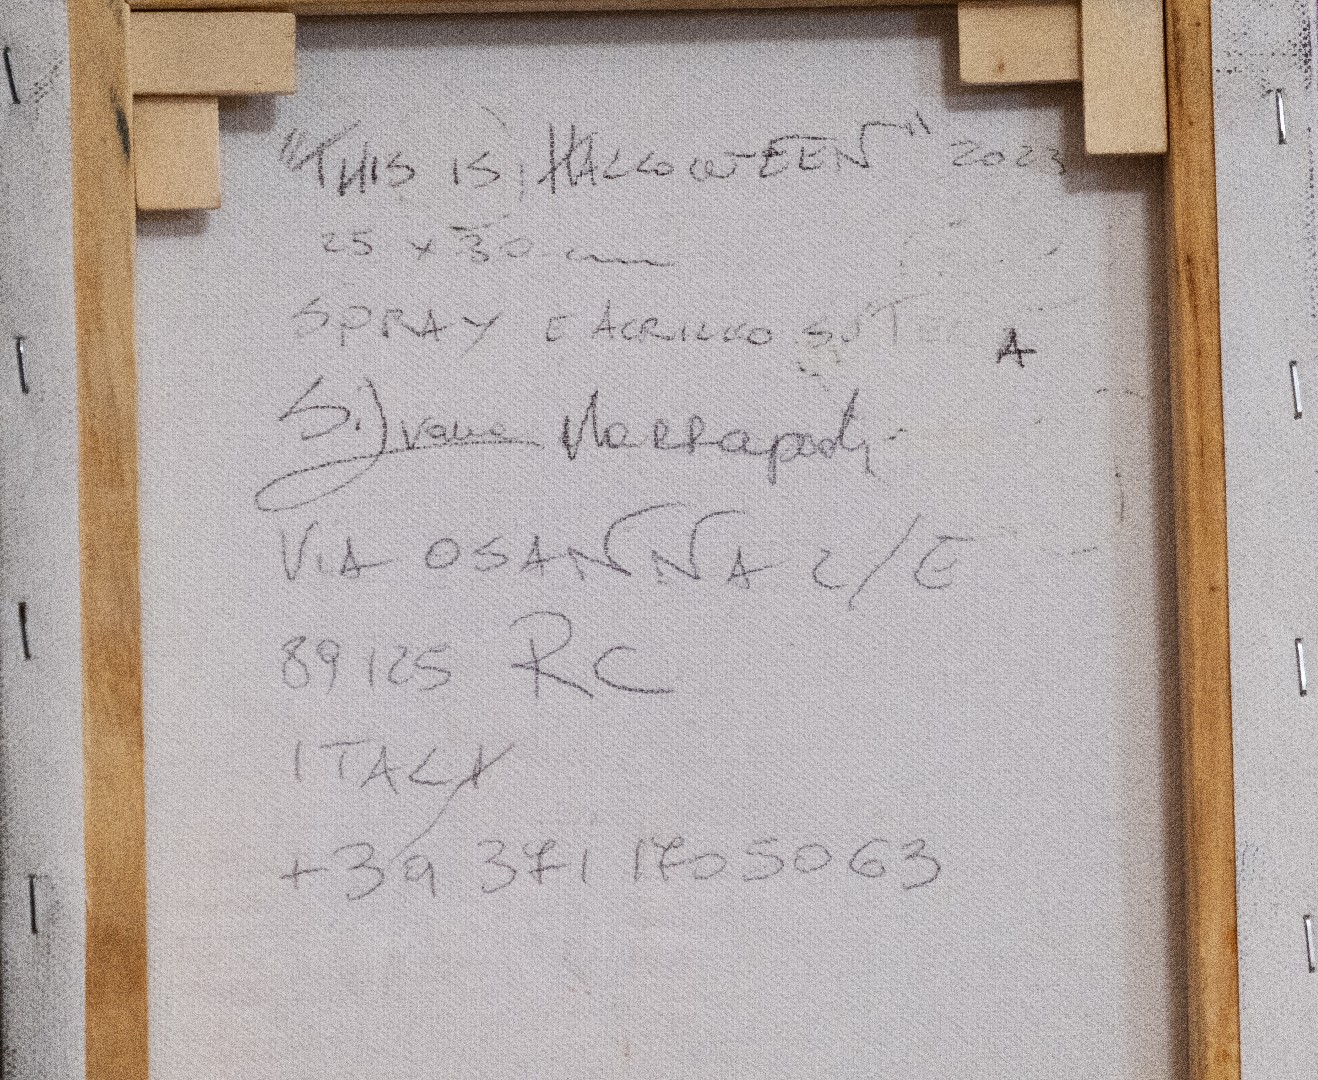 "THIS IS HALLOWEEN" 2023
25 x 30 cm
SPRAY E ACRILICO SU TELA
Silvana Marrapodi
VIA OSANNA 2/E
89125 RC
ITALY
+39 371 1705063